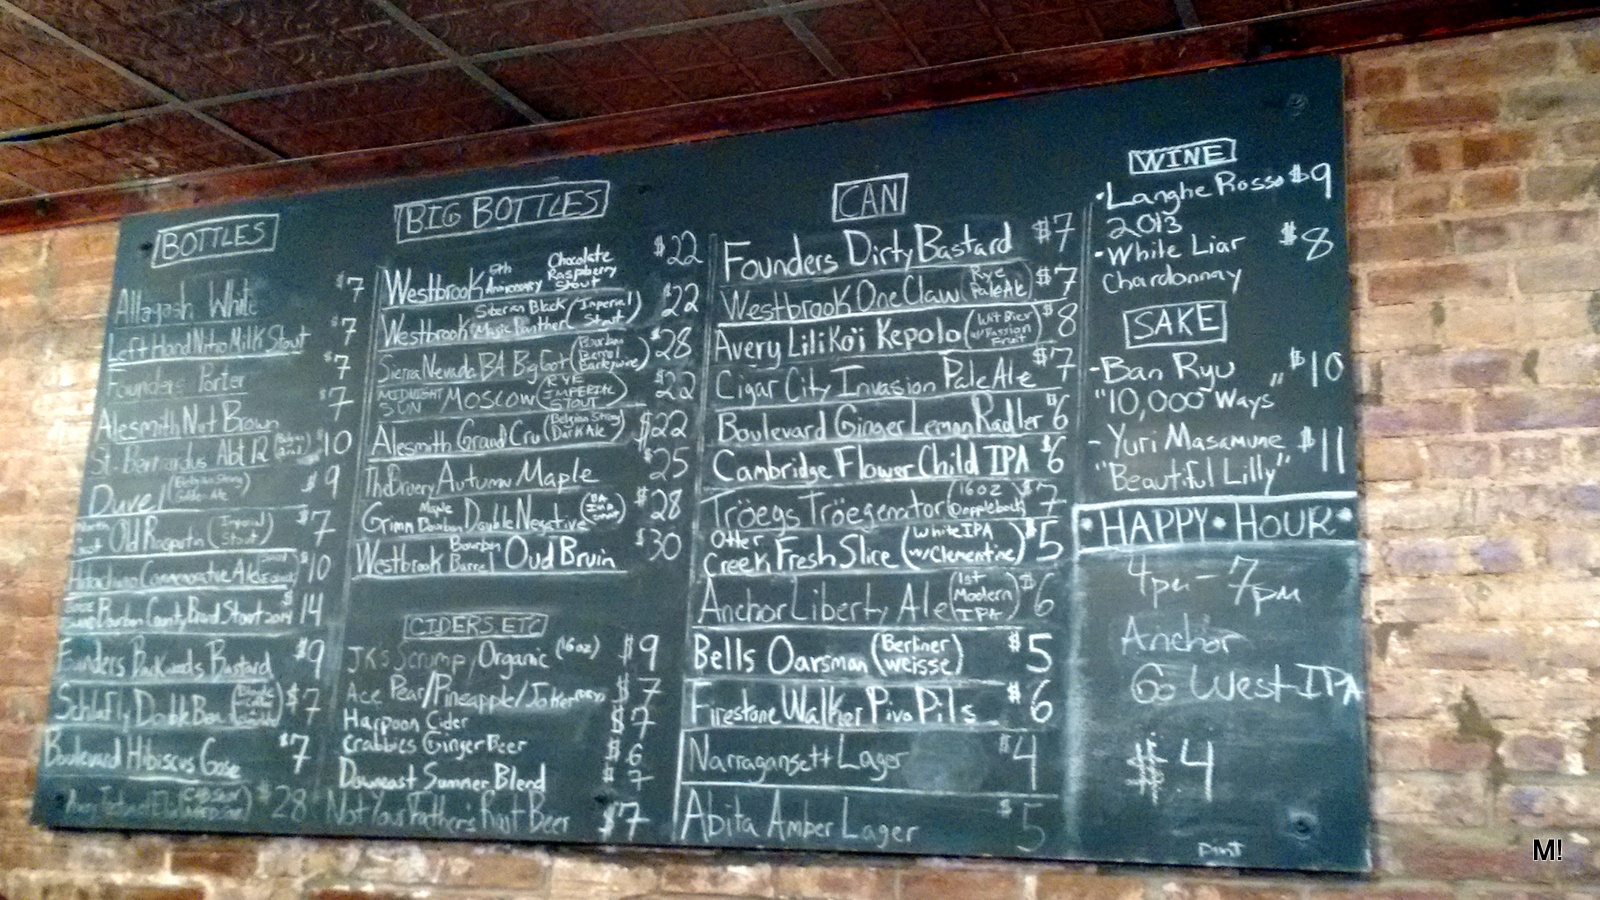 BOTTLES
Allagash White $7
Left Hand Nitro Milk Stout $7
Founders Porter $7
Alesmith Nut Brown $7
St. Bernardus Abt 12 $10
Duvel (Belgian Strong Golden Ale) $9
Old Rasputin (Imperial Stout) $7
Hitachino Commemorative Ale $10
Bourbon County Brand Stout 2014 $14
Founders Backwoods Bastard $9
Schlafly Double Bean $7
Boulevard Hibiscus Gose $7
$28
BIG BOTTLES
Westbrook 5th Anniversary Chocolate Raspberry Stout $22
Westbrook Siberian Black Magic Panther (Imperial Stout) $22
Sierra Nevada BA Bigfoot (Bourbon Barrel Barleywine) $28
MIDNIGHT SUN MOSCOW (RYE IMPERIAL STOUT) $22
Alesmith Grand Cru (Belgian Strong Dark Ale) $22
The Bruery Autumn Maple $25
Grimm Maple Bourbon Double Negative $28
Westbrook Bourbon Barrel Oud Bruin $30
CIDERS, ETC
JK's Scrumpy Organic (16oz) $9
Ace Pear/Pineapple/Joker $7
Harpoon Cider $7
Crabbies Ginger Beer $6
Downeast Summer Blend $7
Not Your Father's Root Beer $7
CAN
Founders Dirty Bastard $7
Westbrook One Claw (Rye Pale Ale) $7
Avery Liliko'i Kepolo (Wit Bier w/ Passion Fruit) $8
Cigar City Invasion Pale Ale $7
Boulevard Ginger Lemon Radler $6
Cambridge Flower Child IPA $6
Tröegs Tröegenator (16oz Dopplebock) $7
Otter Creek Fresh Slice (White IPA w/ Clementine) $5
Anchor Liberty Ale (1st Modern IPA) $6
Bells Oarsman (Berliner weisse) $5
Firestone Walker Pivo Pils $6
Narragansett Lager $4
Abita Amber Lager $5
WINE
• Langhe Rosso $9
2013
• White Liar $8
Chardonnay
SAKE
- Ban Ryu $10
"10,000 Ways"
- Yuri Masamune $11
"Beautiful Lilly"
• HAPPY • HOUR •
4pm - 7pm
Anchor
Go West IPA
$4
pint
M!